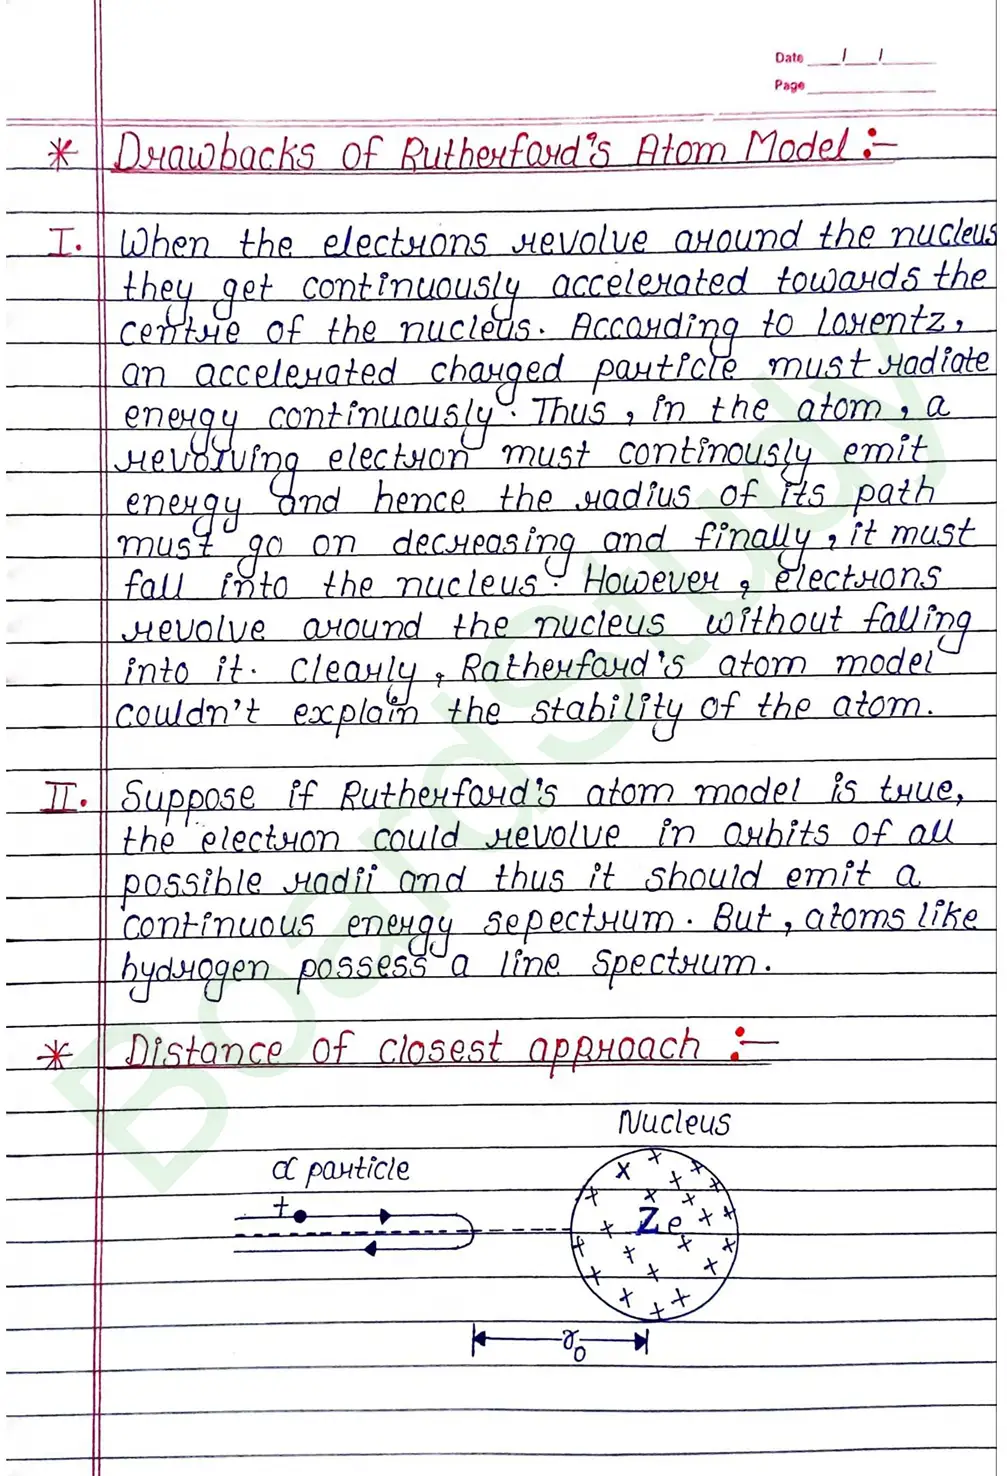 Date __/__/____
Page ________
* Drawbacks of Rutherford's Atom Model :-
I. When the electrons revolve around the nucleus
they get continuously accelerated towards the
centre of the nucleus. According to Lorentz,
an accelerated charged particle must radiate
energy continuously. Thus, in the atom, a
revolving electron must continously emit
energy and hence the radius of its path
must go on decreasing and finally, it must
fall into the nucleus. However, electrons
revolve around the nucleus without falling
into it. Clearly, Ratherford's atom model
couldn't explain the stability of the atom.
II. Suppose if Rutherford's atom model is true,
the electron could revolve in orbits of all
possible radii and thus it should emit a
continuous energy sepectrum. But, atoms like
hydrogen possess a line spectrum.
* Distance of closest approach :-
Nucleus
α particle
+
Ze
r₀
BoardStudy